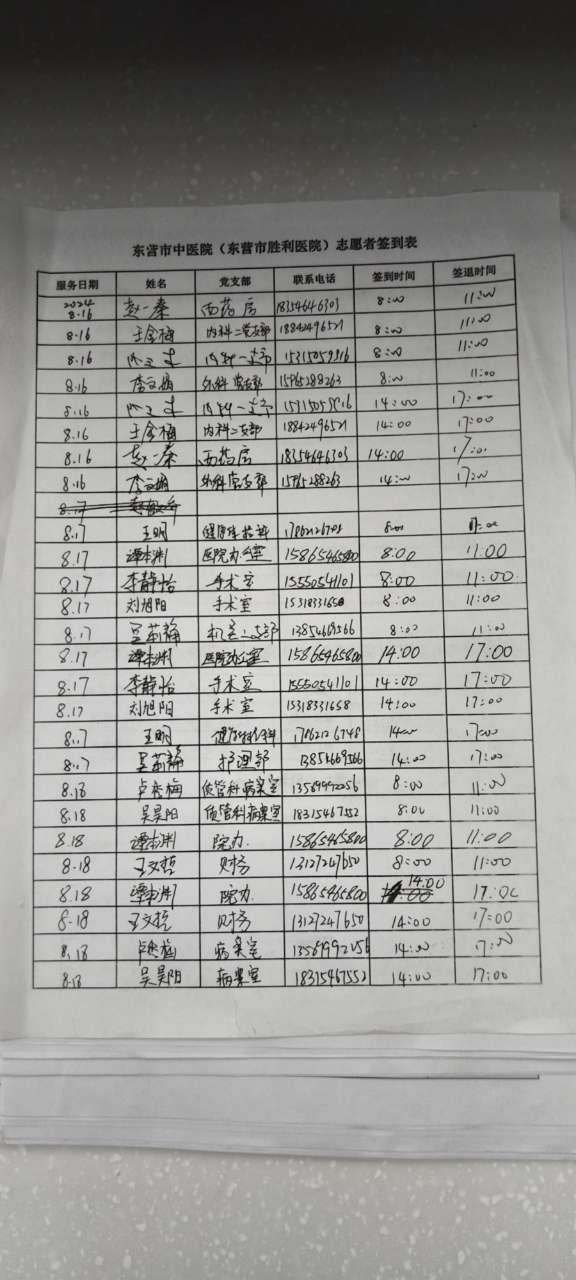 东营市中医院（东营市胜利医院）志愿者签到表
服务日期 姓名 党支部 联系电话 签到时间 签退时间
2024 8.16 赵一秦 西药房 18354646303 8:00 11:00
8.16 王金梅 内科二支部 18842496521 8:00 11:00
8.16 内科一支部 15315059916 8:00 11:00
8.16 李文娟 外科党支部 8:00 11:00
8.16 内科一支部 14:00 17:00
8.16 王金梅 内科二支部 18842496521 14:00 17:00
8.16 赵一秦 西药房 18354646303 14:00 17:00
8.16 李文娟 外科党支部 14:00 17:00
8.17
8.17 王明 8:00 11:00
8.17 谭本渊 医院办公室 15865465800 8:00 11:00
8.17 李静怡 手术室 15550541101 8:00 11:00
8.17 刘旭阳 手术室 15318331658 8:00 11:00
8.17 机关二支部 13854669566 8:00 11:00
8.17 谭本渊 医院办公室 15865465800 14:00 17:00
8.17 李静怡 手术室 15550541101 14:00 17:00
8.17 刘旭阳 手术室 15318331658 14:00 17:00
8.17 王明 17862126748 14:00 17:00
8.17 护理部 13854669566 14:00 17:00
8.18 质管科病案室 13569992056 8:00 11:00
8.18 吴昊阳 质管科病案室 18315467552 8:00 11:00
8.18 谭本渊 院办 15865465800 8:00 11:00
8.18 王文哲 财务 13127247650 8:00 11:00
8.18 谭本渊 院办 15865465800 14:00 17:00
8.18 王文哲 财务 13127247650 14:00 17:00
8.18 病案室 14:00 17:00
8.18 吴昊阳 病案室 18315467552 14:00 17:00